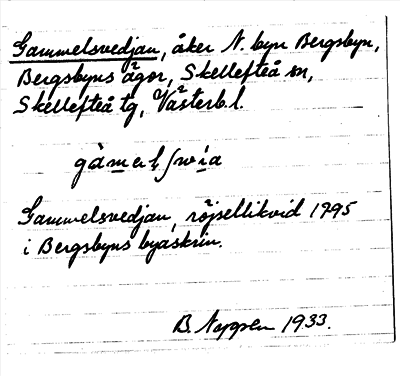 Gammelsvedjan, åker N. byn Bergsbyn,
Bergsbyns ägor, Skellefteå sn,
Skellefteå tg, Västerb. l.
Gammelsvedjan, röjsellikvid 1795
i Bergsbyns byaskrin.
B. Noppen 1933.